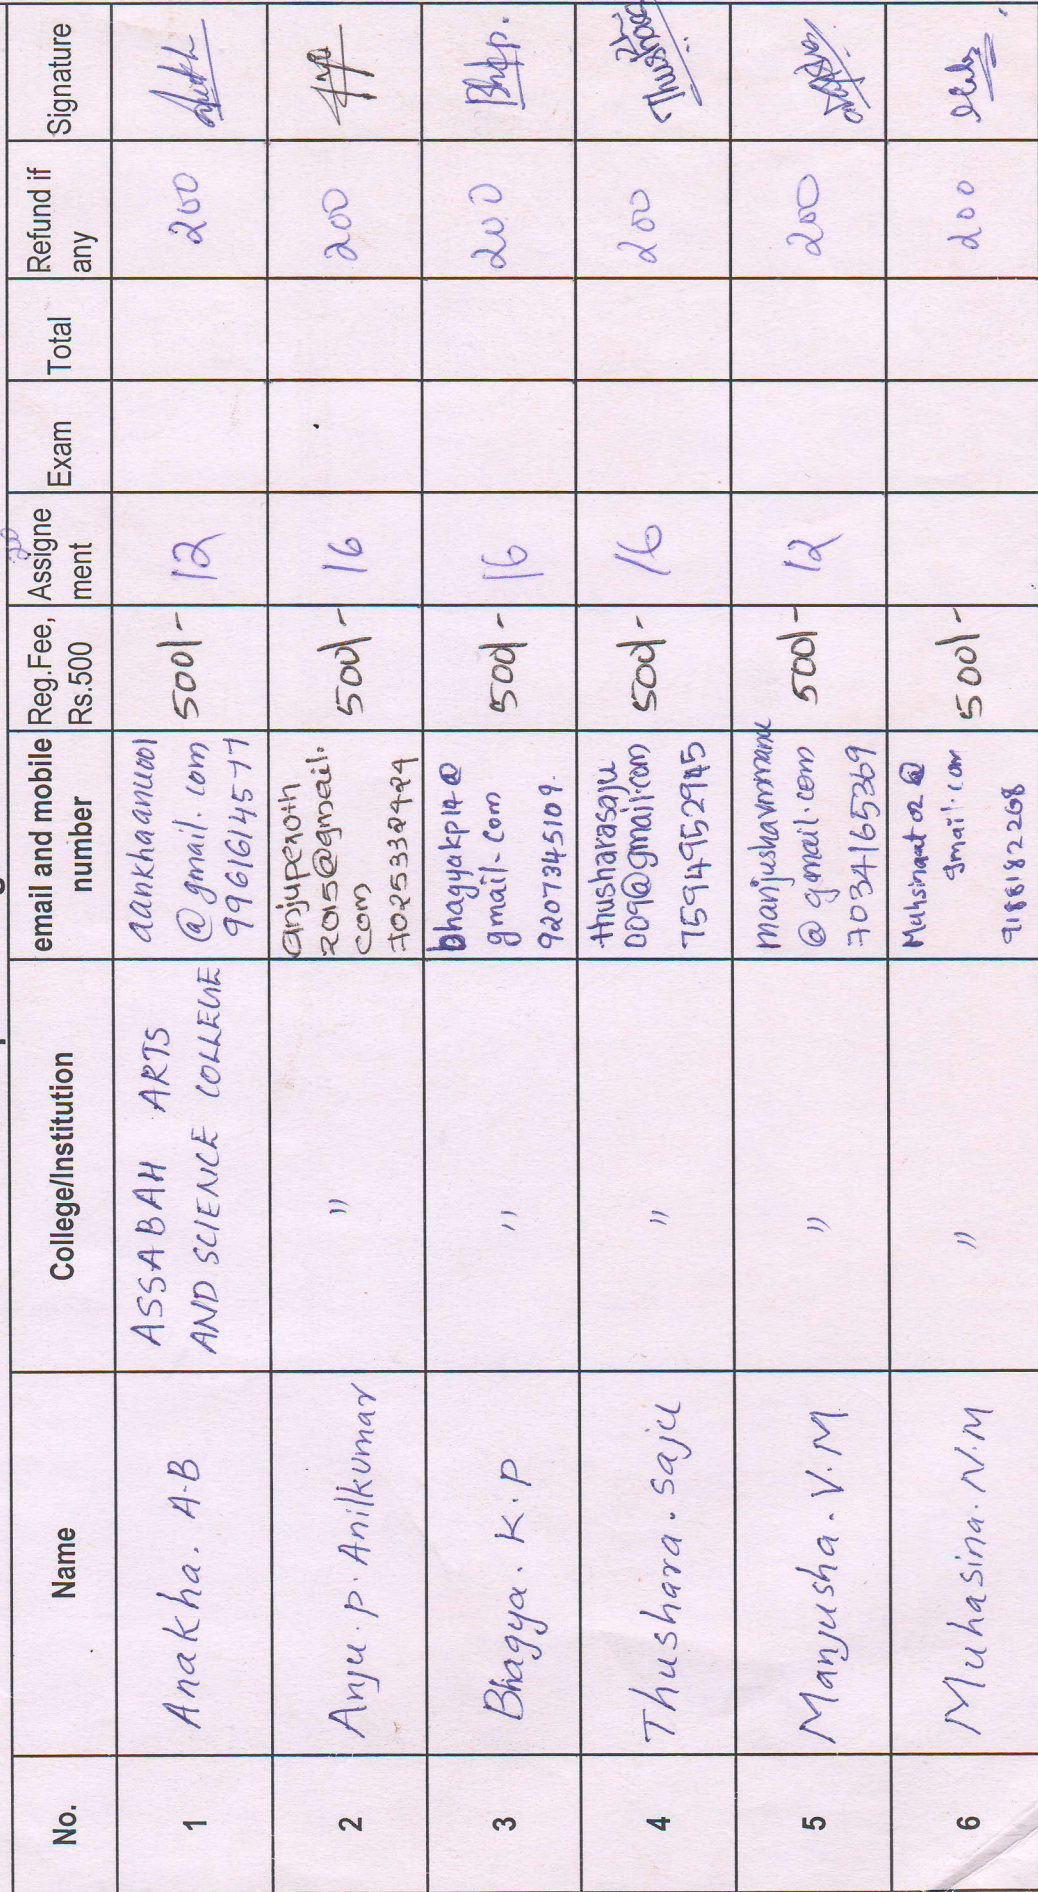 No.
Name
College/Institution
email and mobile
number
Reg.Fee,
Rs.500
20
Assigne
ment
Exam
Total
Refund if
any
Signature
1
Anakha. A-B
ASSABAH ARTS
AND SCIENCE COLLEGE
aankhaanu001
@gmail.com
9961614577
500/-
12
200
2
Anju. P. Anilkumar
"
anjuperoth
2015@gmail.
com
7025332424
500/-
16
200
3
Bhagya. K. P
"
bhagyakp14@
gmail.com
9207345109.
500/-
16
200
4
Thushara. saju
"
thusharasaju
009@gmail.com
7594952945
500/-
16
200
Thushara
5
Manjusha. V. M
"
@gmail.com
7034165369
500/-
12
200
6
Muhasina. N. M
"
gmail.com
9188182268
500/-
200